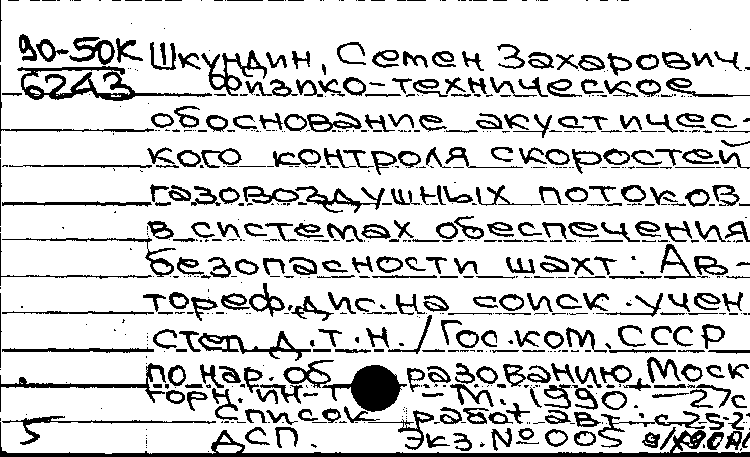 90-50К Шкундин, Семен Захарович.
6243 Физико-техническое
обоснование акустичес-
кого контроля скоростей
газовоздушных потоков
в системах обеспечения
безопасности шахт: Ав-
тореф. дис. на соиск. учен
степ. д.т.н. / Гос. ком. СССР
по нар. образованию, Моск
горн. ин-т - М., 1990. - 27с
Список работ авт.: с 25-2
5 ДСП. Экз. № 005